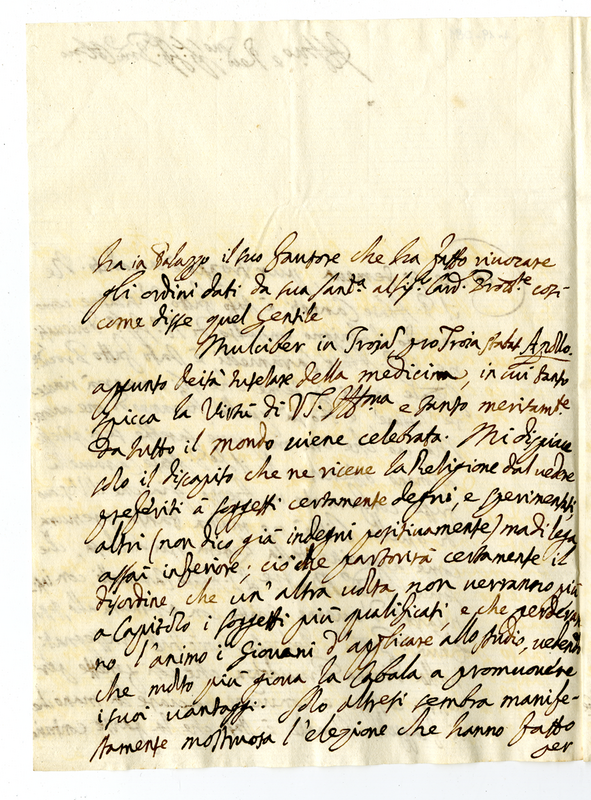 ha in Palazzo il suo fautore che ha fatto rivocare
gli ordini dati da sua Sant.a al Sig.r Card. Prott.re così
come disse quel Gentile
Mulciber in Trojã pro Troia stabat Apollo.
appunto deità tutelare della medicina, in cui tanto
spicca la Virtù di V.S. Ill.ma e tanto meritamte
da tutto il mondo viene celebrata. Mi dispiace
solo il discapito che ne riceve la Religione dal vedere
preferiti à soggetti certamente degni, e sperimentati,
altri (non dico già indegni positivamente) ma di lega
assai inferiore; ciò che partorirà certamente il
disordine, che un'altra volta non verranno più
a Capitolo i soggetti più qualificati, e che perderan
no l'animo i Giovani d'applicare allo studio, veden
che molto più giova la Cabala a promuovere
i suoi vantaggi. Solo altresì sembra manife-
stamente mostruosa l'elezione che hanno fatto
per